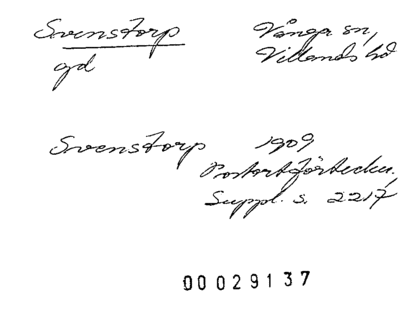 Svenstorp Vånga sn,
gd Villands hd
Svenstorp 1909
Postortförteckn.,
Suppl. s. 2217
00029137